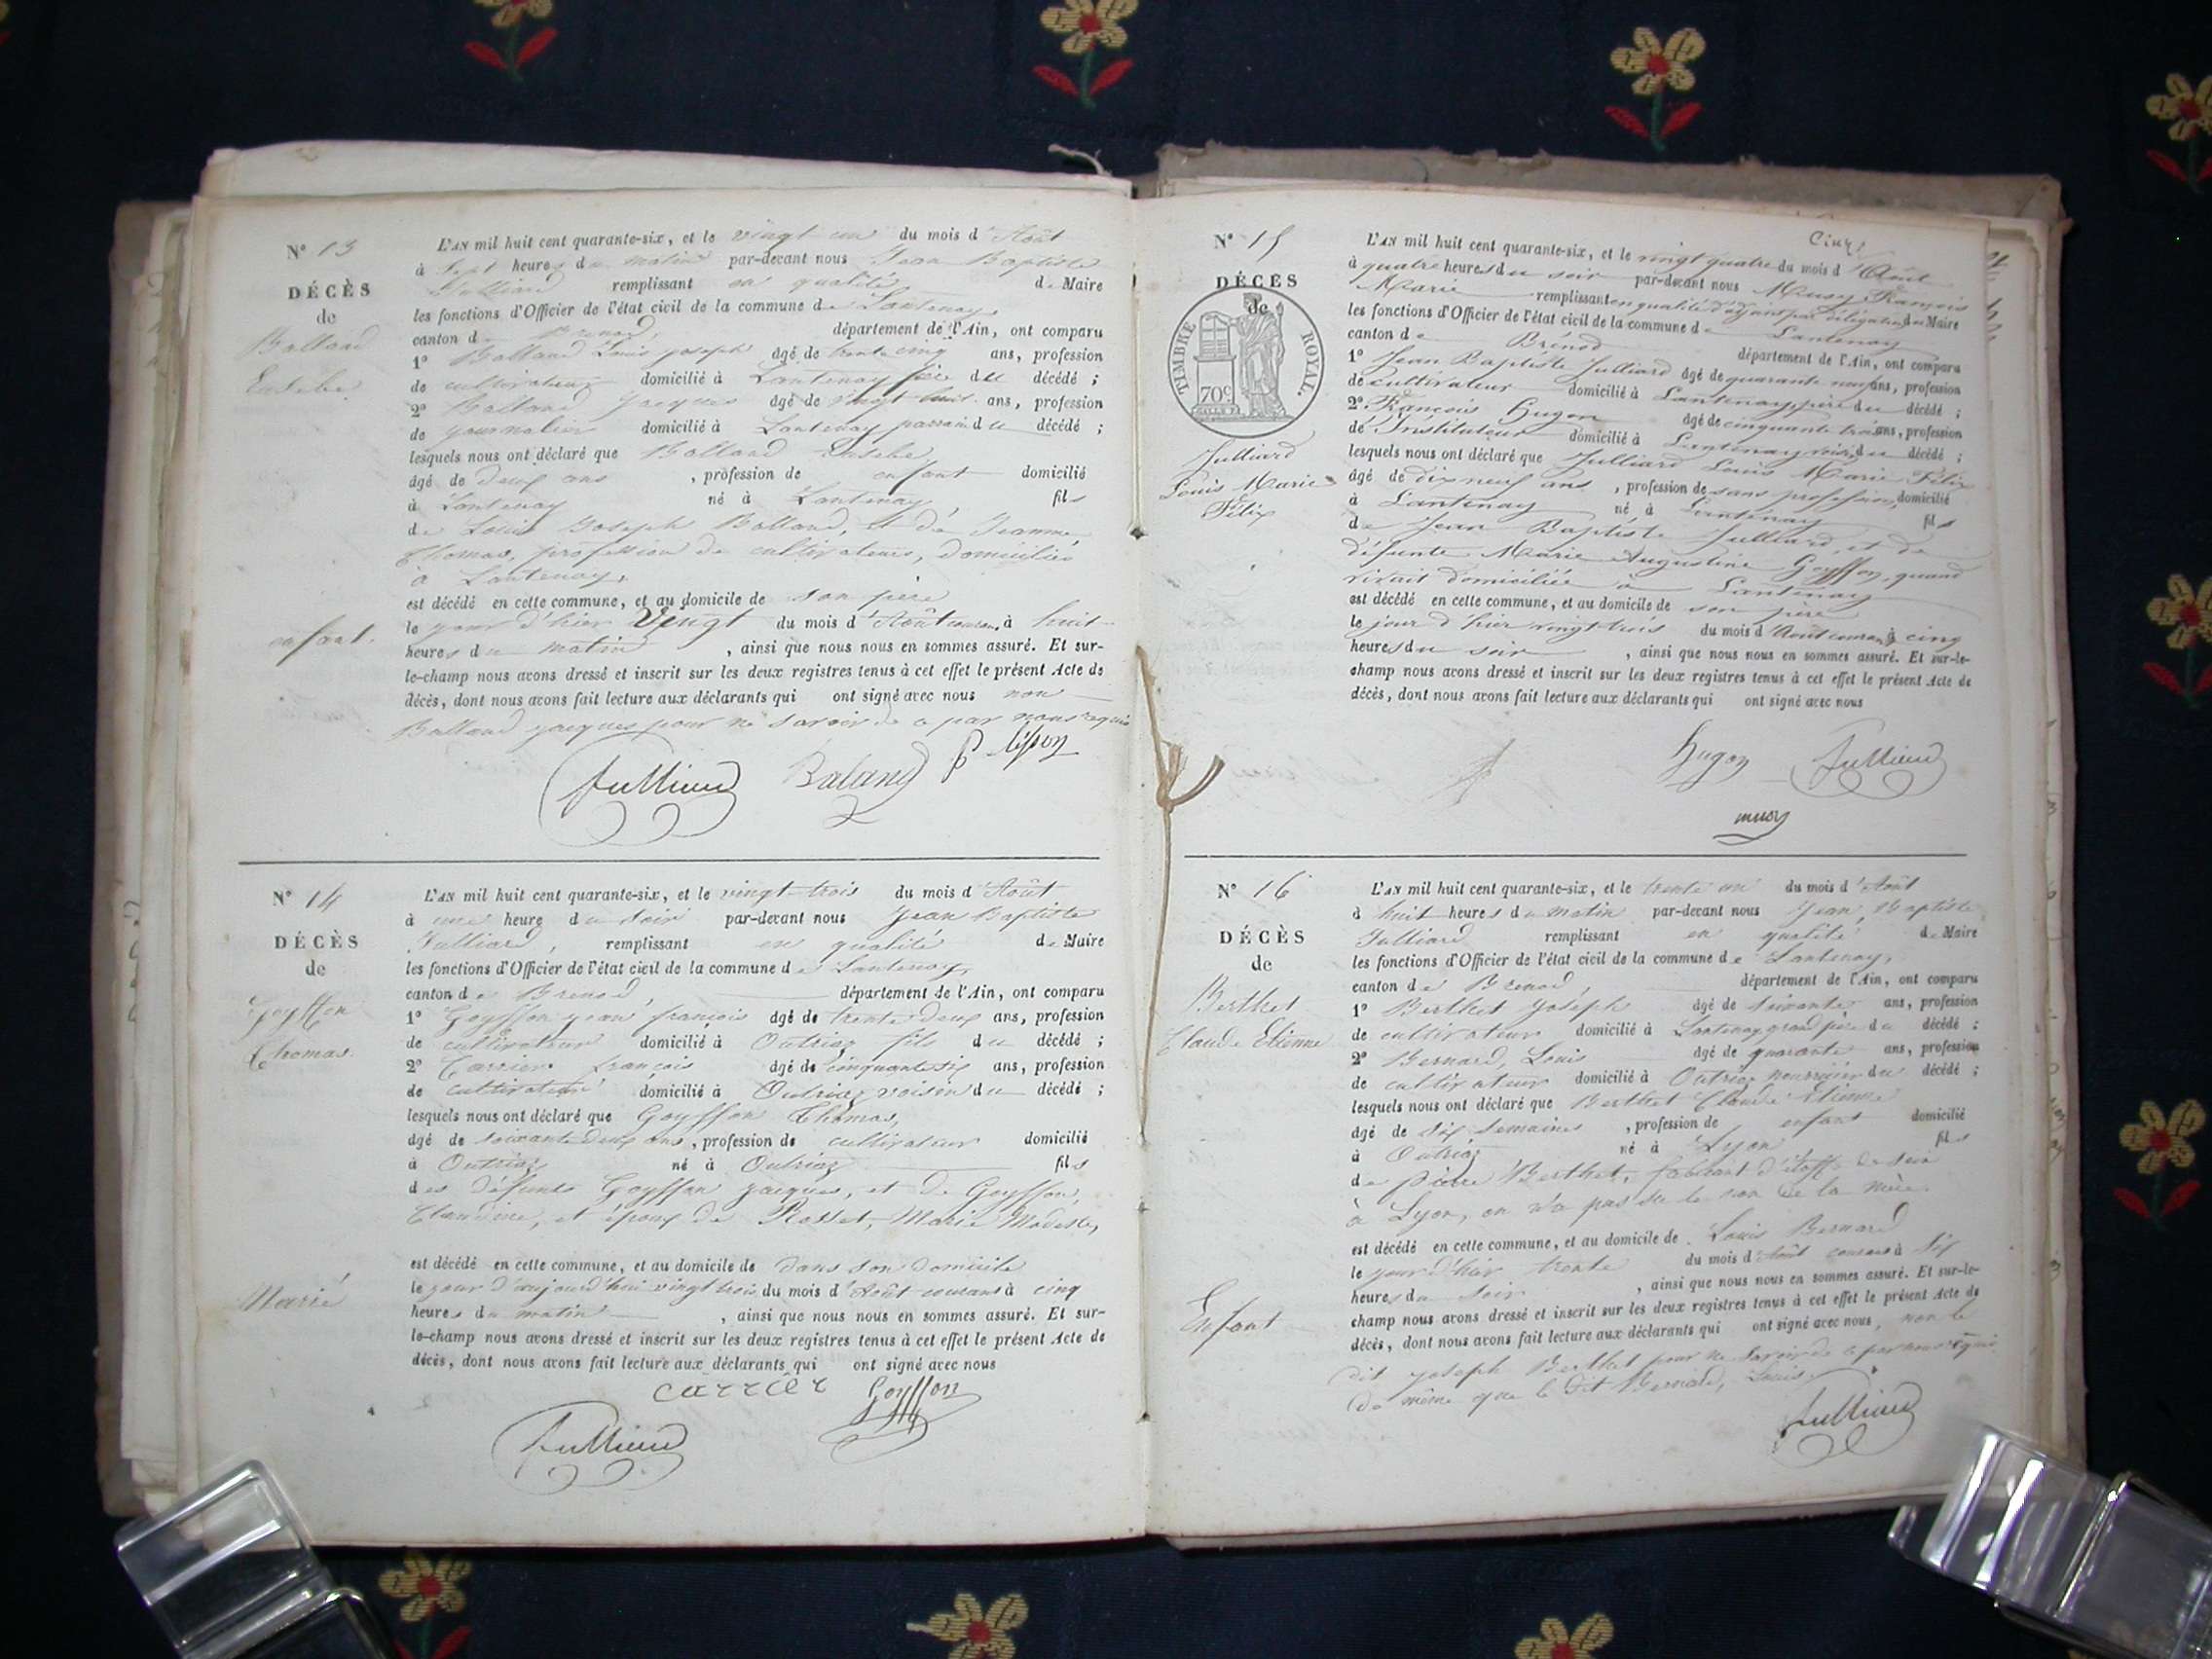 N° 13
DÉCÈS
de
Balland
Eusèbe
enfant.
L'AN mil huit cent quarante-six, et le vingt un du mois d'Août
à Sept heures du matin par-devant nous Jean Baptiste
Julliard remplissant en qualité de Maire
les fonctions d'Officier de l'état civil de la commune de Lantenay,
canton de Brenod, département de l'Ain, ont comparu
1° Balland Louis joseph âgé de trente cinq ans, profession
de cultivateur domicilié à Lantenay père du décédé ;
2° Balland Jacques âgé de vingt huit ans, profession
de journalier domicilié à Lantenay parrain du décédé ;
lesquels nous ont déclaré que Balland Eusèbe,
âgé de deux ans , profession de enfant domicilié
à Lantenay né à Lantenay, fils
de Louis Joseph Balland, et de Jeanne
Thomas, profession de cultivateurs, domiciliés
à Lantenay,
est décédé en cette commune, et au domicile de son père
le jour d'hier Vingt du mois d'Août courant à huit
heures du matin , ainsi que nous nous en sommes assuré. Et sur-
le-champ nous avons dressé et inscrit sur les deux registres tenus à cet effet le présent Acte de
décès, dont nous avons fait lecture aux déclarants qui ont signé avec nous non
Balland jacques pour ne savoir de ce par nous requis
Julliard Baland
N° 14
DÉCÈS
de
Goyffon
Thomas.
Marié
L'AN mil huit cent quarante-six, et le vingt-trois du mois d'Août
à une heure du soir par-devant nous Jean Baptiste
Julliard, remplissant en qualité de Maire
les fonctions d'Officier de l'état civil de la commune de Lantenay,
canton de Brenod, département de l'Ain, ont comparu
1° Goyffon jean françois âgé de trente deux ans, profession
de cultivateur domicilié à Outriaz fils du décédé ;
2° Carrier françois âgé de cinquante six ans, profession
de cultivateur domicilié à Outriaz voisin du décédé ;
lesquels nous ont déclaré que Goyffon Thomas,
âgé de soixante deux ans, profession de cultivateur domicilié
à Outriaz né à Outriaz fils
des défunts Goyffon jacques, et de Goyffon,
Claudine, et époux de Rosset, Marie Modeste,
est décédé en cette commune, et au domicile de dans son domicile
le jour d'aujourd'hui vingt trois du mois d'Août courant à cinq
heures du matin , ainsi que nous nous en sommes assuré. Et sur-
le-champ nous avons dressé et inscrit sur les deux registres tenus à cet effet le présent Acte de
décès, dont nous avons fait lecture aux déclarants qui ont signé avec nous
carrier Goyffon
Julliard
N° 15
DÉCÈS
de
TIMBRE ROYAL.
70c
Julliard
Louis Marie
Félix
L'AN mil huit cent quarante-six, et le vingt quatre du mois d'Août
à quatre heures du soir par-devant nous Musy François
Marie remplissant en qualité d'adjoint par délégation du Maire
les fonctions d'Officier de l'état civil de la commune de Lantenay
canton de Brénod département de l'Ain, ont comparu
1° Jean Baptiste Julliard âgé de quarante neuf ans, profession
de cultivateur domicilié à Lantenay, père du décédé ;
2° François Hugon âgé de cinquante trois ans, profession
de Instituteur domicilié à Lantenay voisin du décédé ;
lesquels nous ont déclaré que Julliard Louis Marie Félix
âgé de dix neuf ans , profession de sans profession, domicilié
à Lantenay né à Lantenay fils
de Jean Baptiste Julliard, et de
défunte Marie Augustine Goyffon, quand
vivait domiciliée à Lantenay
est décédé en cette commune, et au domicile de son père
le jour d'hier vingt trois du mois d'Août courant à cinq
heures du soir , ainsi que nous nous en sommes assuré. Et sur-le-
champ nous avons dressé et inscrit sur les deux registres tenus à cet effet le présent Acte de
décès, dont nous avons fait lecture aux déclarants qui ont signé avec nous
Hugon Julliard
musy
N° 16
DÉCÈS
de
Berthet
Claude Etienne
Enfant
L'AN mil huit cent quarante-six, et le trente un du mois d'Août
à huit heures du matin par-devant nous Jean Baptiste
Julliard remplissant en qualité de Maire
les fonctions d'Officier de l'état civil de la commune de Lantenay,
canton de Brenod, département de l'Ain, ont comparu
1° Berthet Joseph âgé de soixante ans, profession
de cultivateur domicilié à Lantenay grand père du décédé ;
2° Bernard, Louis âgé de quarante ans, profession
de cultivateur domicilié à Outriaz nourricier du décédé ;
lesquels nous ont déclaré que Berthet Claude Etienne
âgé de six semaines , profession de enfant domicilié
à Outriaz né à Lyon fils
de Pierre Berthet, fabricant d'étoffe de soie
à Lyon, on n'a pas su le nom de la mère.
est décédé en cette commune, et au domicile de Louis Bernard
le jour d'hier trente du mois d'Août courant à six
heures du soir , ainsi que nous nous en sommes assuré. Et sur-le-
champ nous avons dressé et inscrit sur les deux registres tenus à cet effet le présent Acte de
décès, dont nous avons fait lecture aux déclarants qui ont signé avec nous, non le
dit joseph Berthet pour ne savoir de ce par nous requis
de même que le dit Bernard, Louis.
Julliard